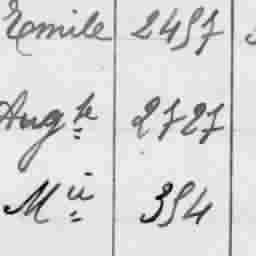 Emile 2457
Aug te 2727
M ie 354